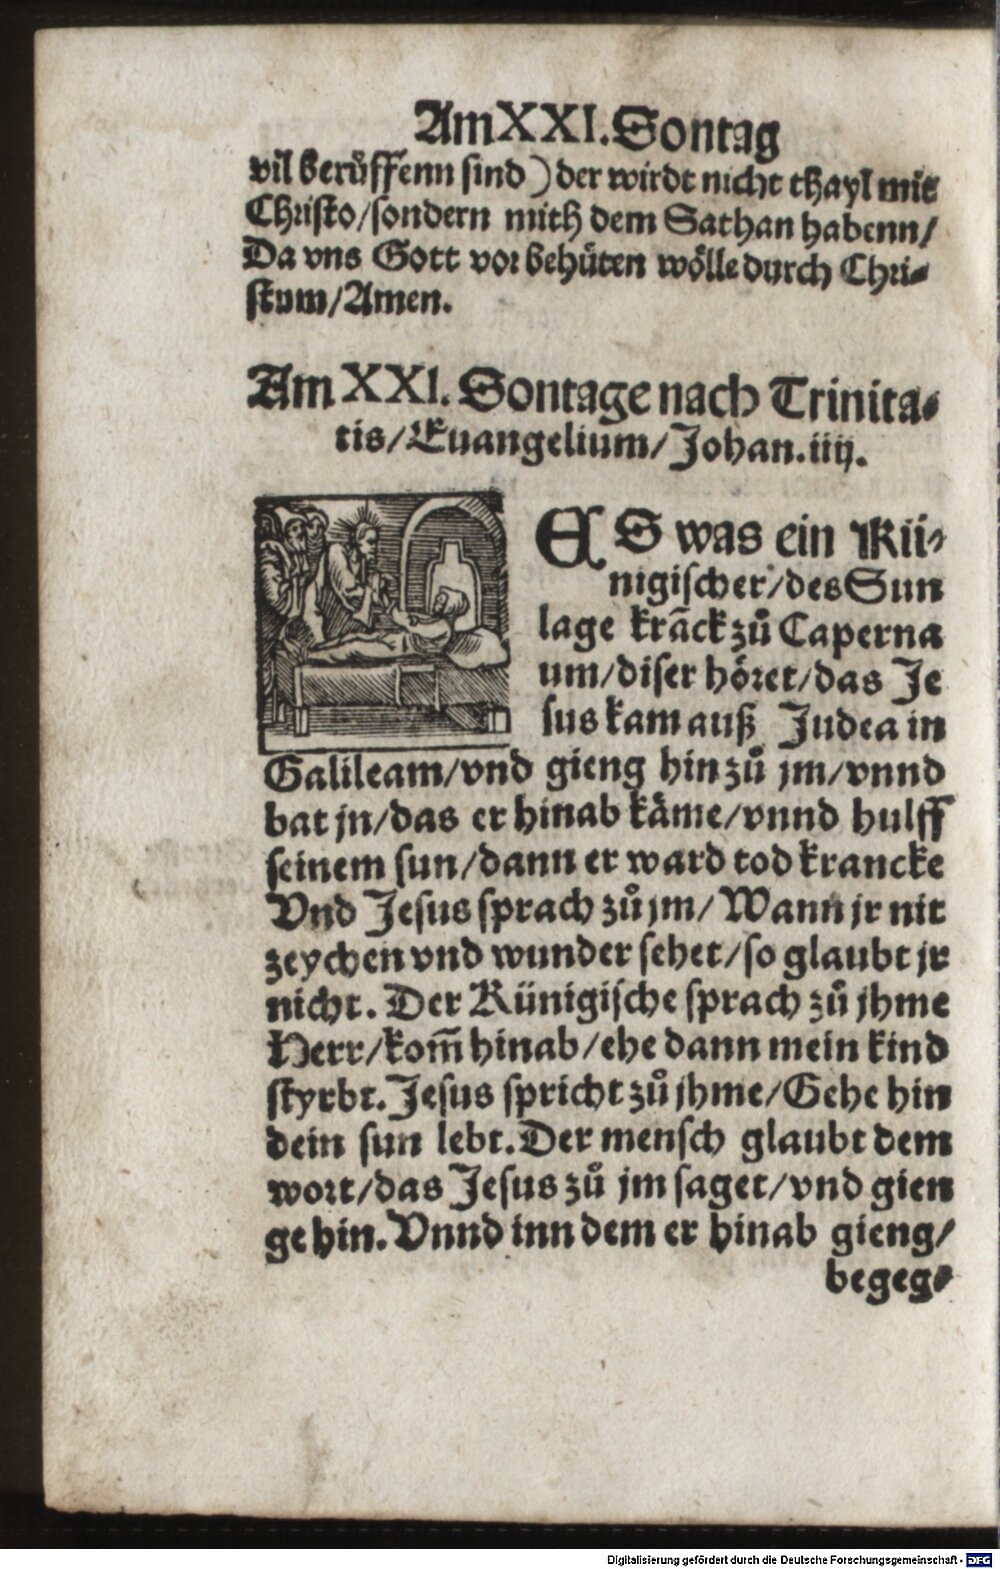 Am XXI. Sontag
vil berůffenn sind) der wirdt nicht thayl mit
Christo/sondern mith dem Sathan habenn/
Da vns Gott vor behüten wölle durch Chri-
stum/Amen.
Am XXI. Sontage nach Trinita-
tis/Euangelium/Johan.iiij.
ES was ein Kü-
nigischer/des Sun
lage krāck zů Caperna
um/diser höret/das Je
sus kam auß Judea in
Galileam/vnd gieng hin zů jm/vnnd
bat jn/das er hinab käme/vnnd hulff
seinem sun/dann er ward tod krancke
Vnd Jesus sprach zů jm/Wann jr nit
zeychen vnd wunder sehet/so glaubt jr
nicht. Der Künigische sprach zů jhme
Herr/kom̄ hinab/ehe dann mein kind
styrbt. Jesus spricht zů jhme/Gehe hin
dein sun lebt. Der mensch glaubt dem
wort/das Jesus zů jm saget/vnd gien
ge hin. Vnnd inn dem er hinab gieng/
begeg-
Digitalisierung gefördert durch die Deutsche Forschungsgemeinschaft - DFG